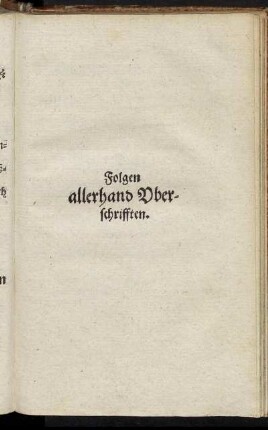 Folgen
allerhand Vber-
schrifften.